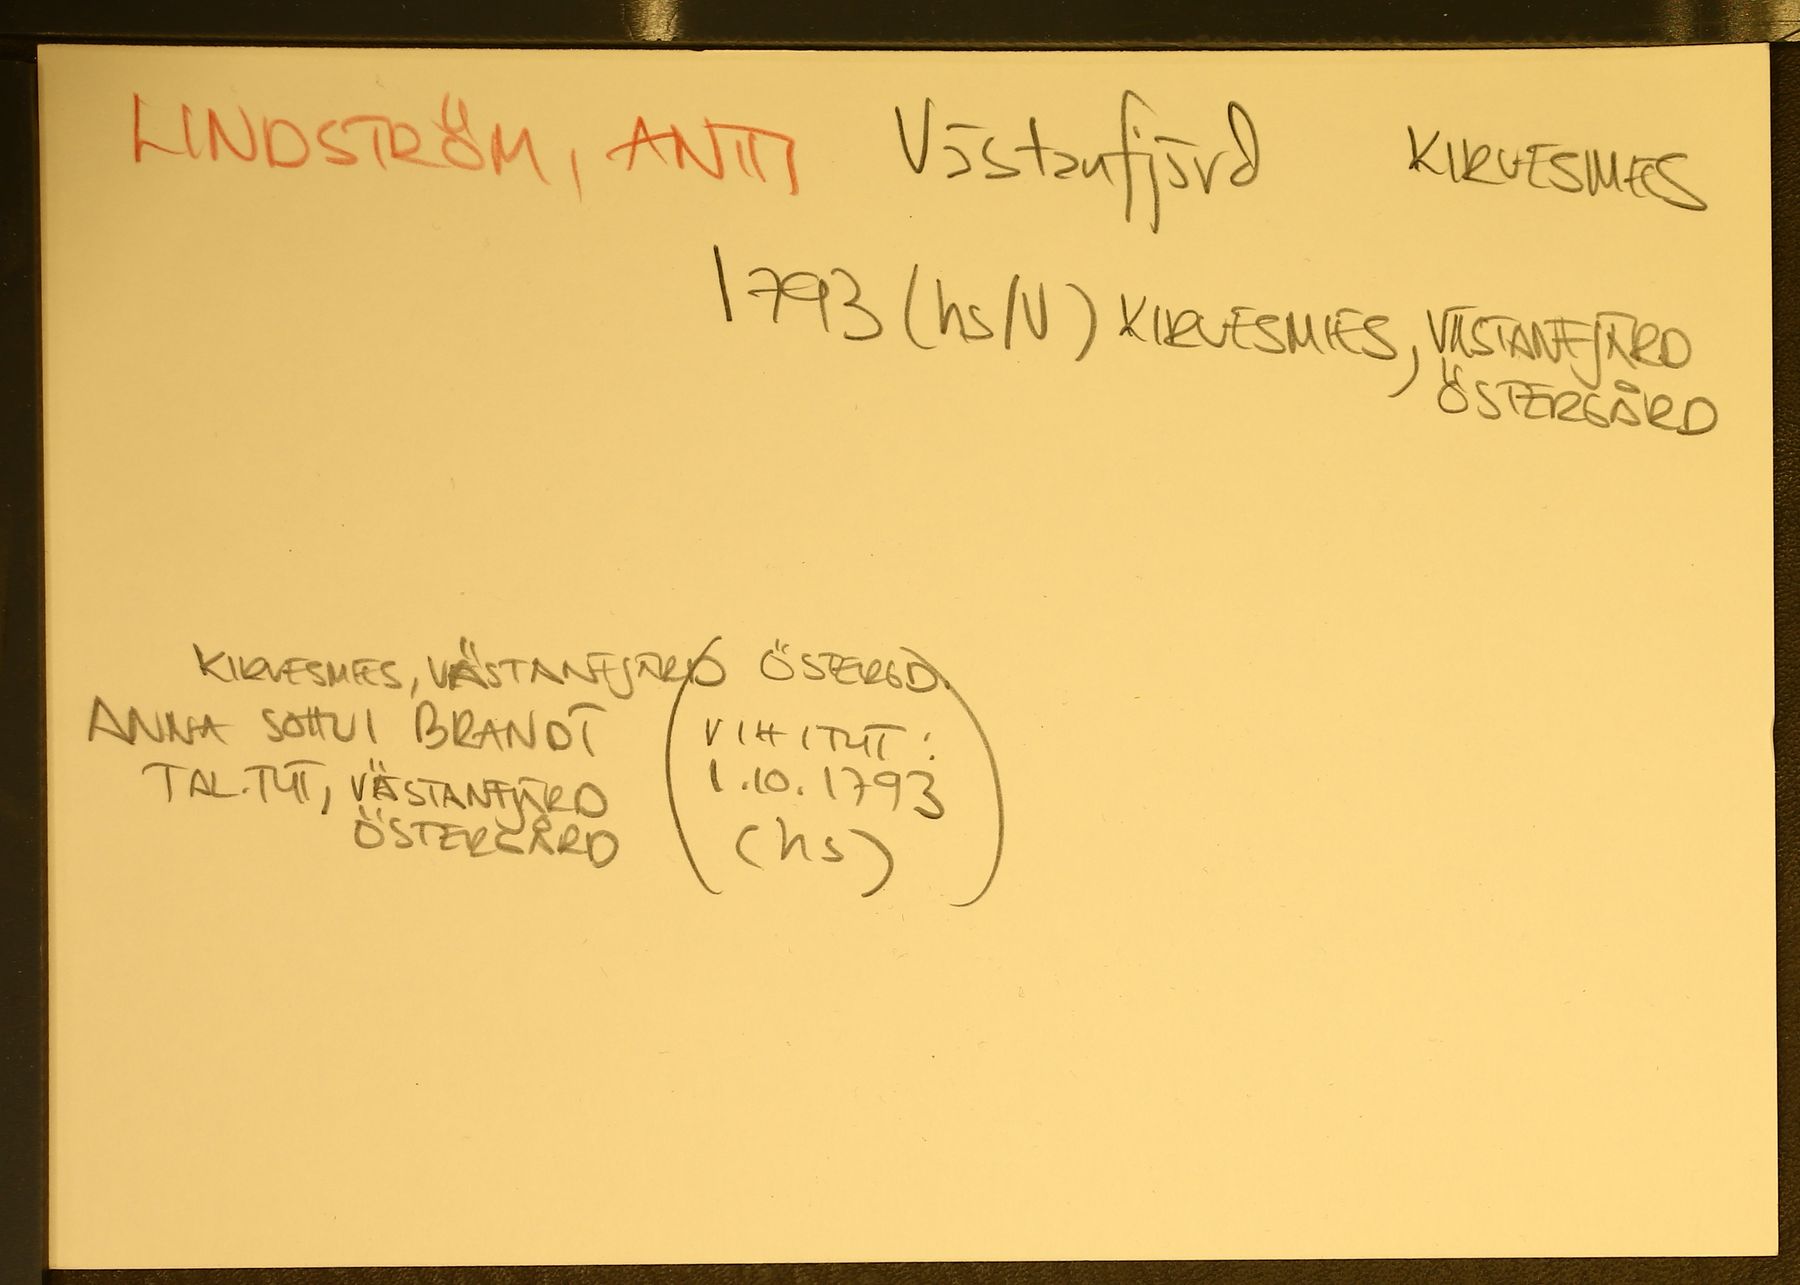 LINDSTRÖM, ANTTI Västanfjärd KIRVESMIES
1793 (hs/V) KIRVESMIES, VÄSTANFJÄRD
ÖSTERGÅRD
KIRVESMIES, VÄSTANFJÄRD ÖSTERGD.
ANNA SOHVI BRANDT
TAL.TYT, VÄSTANFJÄRD
ÖSTERGÅRD
(VIHITYT:
1.10.1793
(hs))